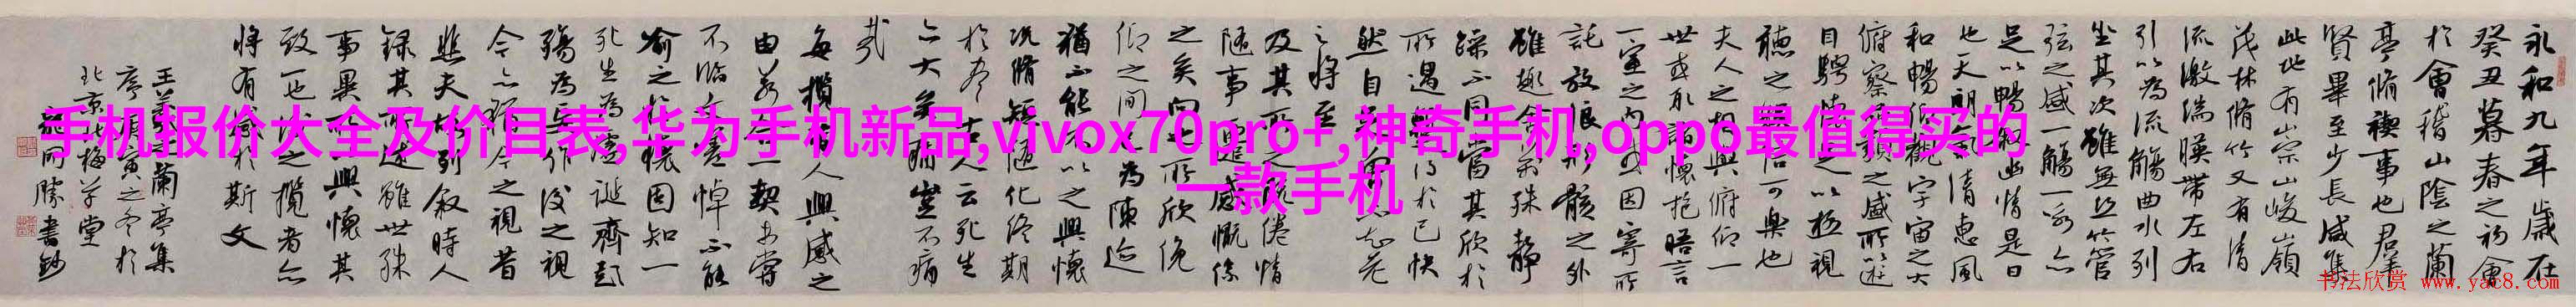 手机报价大全及价目表,华为手机新品,vivox70pro+,神奇手机,oppo最值得买的
一款手机
永和九年歲在
癸丑暮春之初會
於會稽山陰之蘭
亭脩禊事也羣
賢畢至少長咸集
此地有崇山峻嶺
茂林脩竹又有清
流激湍暎帶左右
引以為流觴曲水列
坐其次雖無絲竹管
弦之盛一觴一詠亦
足以暢敘幽情是日
也天朗氣清惠風
和暢仰觀宇宙之大
俯察品類之盛所以遊
目騁懷足以極視
聽之娛信可樂也
夫人之相與俯仰一
世或取諸懷抱晤言
一室之內或因寄所
託放浪形骸之外
雖趣舍萬殊靜
躁不同當其欣於
所遇暫得於己快
然自足不知老
之將至
及其所之既倦情
隨事遷感慨係
之矣向之所欣俛
仰之間以為陳迹
猶不能不以之興懷
況脩短隨化終期
於盡古人云死生
亦大矣豈不痛
哉
每攬昔人興感之
由若合一契未嘗
不臨文嗟悼不能
喻之於懷固知一
死生為虛誕齊彭
殤為妄作後之視
今亦猶今之視昔
悲夫故列敘時人
錄其所述雖世殊
事異所以興懷其
致一也後之攬者亦
將有感於斯文
王羲之蘭亭集
序庚寅之冬於
北京北梅草堂
同勝書鈔
书法欣赏 www.yac8.com